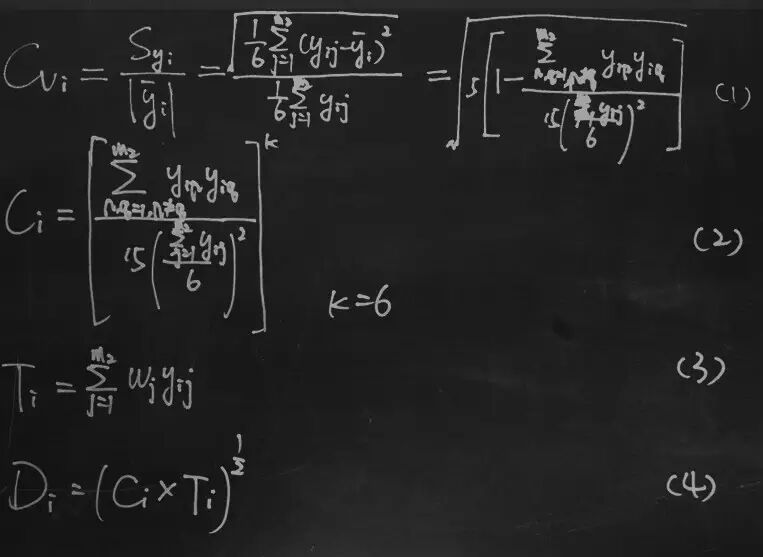 C_{vi} = \frac{S_{yi}}{|\bar{y}_i|} = \frac{\sqrt{\frac{1}{6}\sum_{j=1}^{m_2}(y_{ij}-\bar{y}_i)^2}}{\frac{1}{6}\sum_{j=1}^{m_2} y_{ij}} = \sqrt{5\left[1-\frac{\sum_{p,q=1,p≠q}^{m_2} y_{ip}y_{iq}}{15\left(\frac{\sum_{j=1}^{m_2} y_{ij}}{6}\right)^2}\right]} (1)
C_i = \left[\frac{\sum_{p,q=1,p≠q}^{m_2} y_{ip}y_{iq}}{15\left(\frac{\sum_{j=1}^{m_2} y_{ij}}{6}\right)^2}\right]^k (2)
k=6
T_i = \sum_{j=1}^{m_2} w_j y_{ij} (3)
D_i = (C_i × T_i)^{\frac{1}{2}} (4)